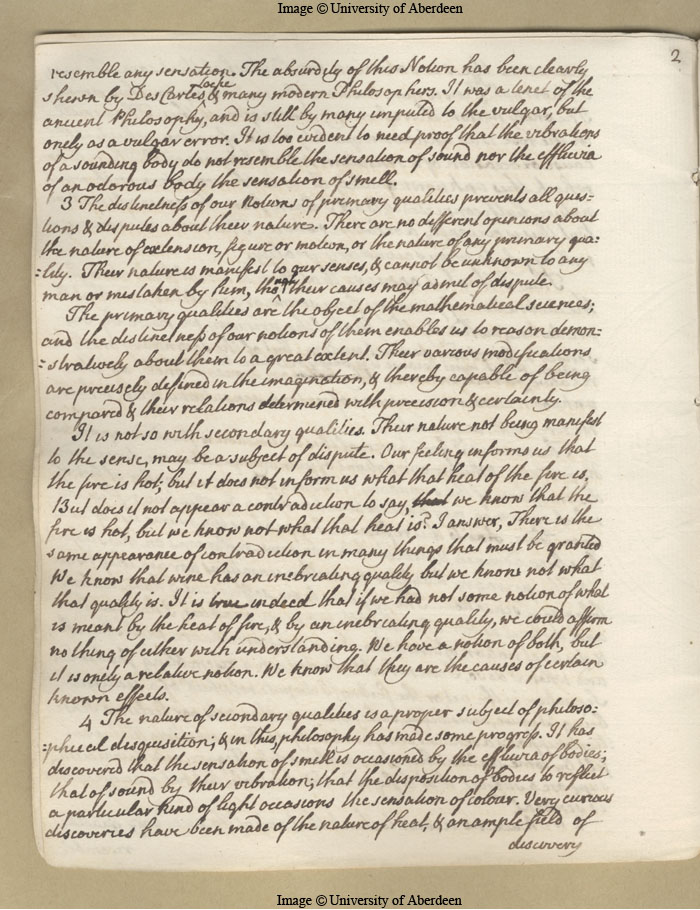 Image © University of Aberdeen
2
resemble any sensation. The absurdity of this Notion has been clearly
shewn by Des Cartes, Locke & many modern Philosophers. It was a tenet of the
ancient Philosophy, and is still by many imputed to the vulgar, but
onely as a vulgar error. It is too evident to need proof that the vibrations
of a sounding body do not resemble the sensation of sound nor the effluvia
of an odorous body the sensation of smell.
3 The distinctness of our Notions of primary qualities prevents all ques=
tions & disputes about their nature. There are no different opinions about
the nature of extension, figure or motion, or the nature of any primary qua:
:lity. Their nature is manifest to our senses, & cannot be unknown to any
man or mistaken by him, tho their causes may admit of dispute.
The primary qualities are the object of the mathematical sciences;
and the distinctness of our notions of them enables us to reason demon:
:stratively about them to a great extent. Their various modifications
are precisely defined in the imagination, & thereby capable of being
compared & their relations determined with precision & certainty.
It is not so with secondary qualities. Their nature not being manifest
to the sense, may be a subject of dispute. Our feeling informs us that
the fire is hot; but it does not inform us what that heat of the fire is.
But does it not appear a contradiction to say, that we know that the
fire is hot, but we know not what that heat is? I answer, There is the
same appearance of contradiction in many things that must be granted
We know that wine has an inebriating quality but we know not what
that quality is. It is true indeed that if we had not some notion of what
is meant by the heat of fire, & by an inebriating quality, we could affirm
nothing of either with understanding. We have a notion of both, but
it is onely a relative notion. We know that they are the causes of certain
known effects.
4 The nature of secondary qualities is a proper subject of philoso:
:phical disquisition; & in this, philosophy has made some progress. It has
discovered that the sensation of smell is occasioned by the effluvia of bodies;
that of sound by their vibration; that the disposition of bodies to reflect
a particular kind of light occasions the sensation of colour. Very curious
discoveries have been made of the nature of heat, & an ample field of
discovery
Image © University of Aberdeen